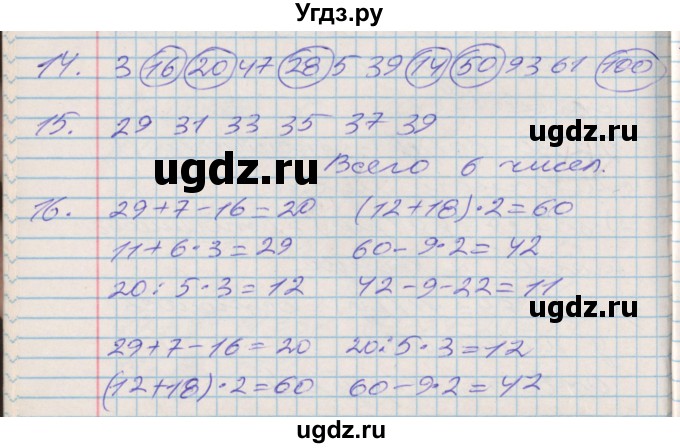 Угдз.ру
14. 3 16 20 47 28 5 39 14 50 93 61 100
15. 29 31 33 35 37 39
ugdz.ru
ugdz.ru
Всего 6 чисел.
16. 29+7-16=20 (12+18)·2=60
11+6·3=29 60-9·2=42
20:5·3=12 42-9-22=11
ugdz.ru
ugdz.ru
29+7-16=20 20:5·3=12
(12+18)·2=60 60-9·2=42
ugdz.ru
ugdz.ru